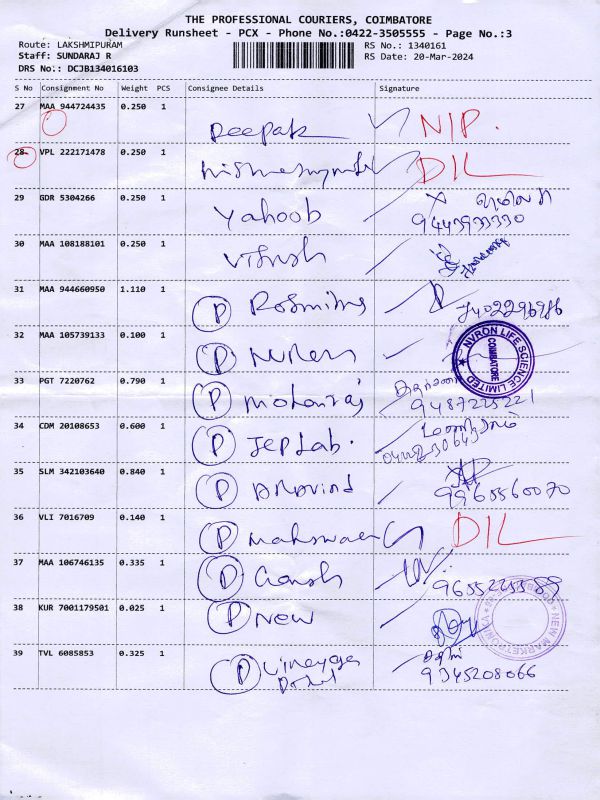 THE PROFESSIONAL COURIERS, COIMBATORE
Delivery Runsheet - PCX - Phone No.:0422-3505555 - Page No.:3
Route: LAKSHMIPURAM
RS No.: 1340161
Staff: SUNDARAJ R
RS Date: 20-Mar-2024
DRS No.: DCJB134016103
S No Consignment No Weight PCS Consignee Details Signature
27 MAA 944724435 0.250 1 Deepak N/P.
28 VPL 222171478 0.250 1 DIL
29 GDR 5304266 0.250 1 Yahoob
9443933330
30 MAA 108188101 0.250 1
31 MAA 944660950 1.110 1 P
32 MAA 105739133 0.100 1 P
NVRON LIFE SCIENCE LIMITED
COIMBATORE
33 PGT 7220762 0.790 1 P Mohanraj
9487225221
34 CDM 20108653 0.600 1 P JEP Lab.
35 SLM 342103640 0.840 1 P Aravind
9965560070
36 VLI 7016709 0.140 1 P DIL
37 MAA 106746135 0.335 1 P Ganesh
9655225589
38 KUR 7001179501 0.025 1 P New
39 TVL 6085853 0.325 1 P Vinayaga
9345208066